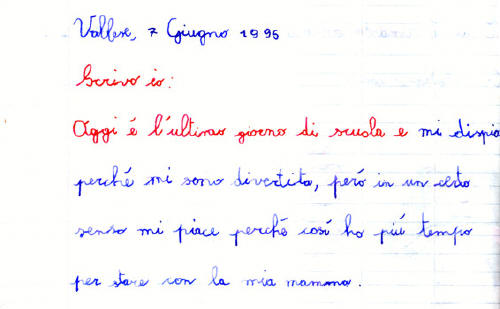 Vallese, 7 Giugno 1996
Scrivo io:
Oggi é l'ultimo giorno di scuola e mi dispia
perché mi sono divertita, peró in un certo
senso mi piace perché cosí ho piú tempo
per stare con la mia mamma.